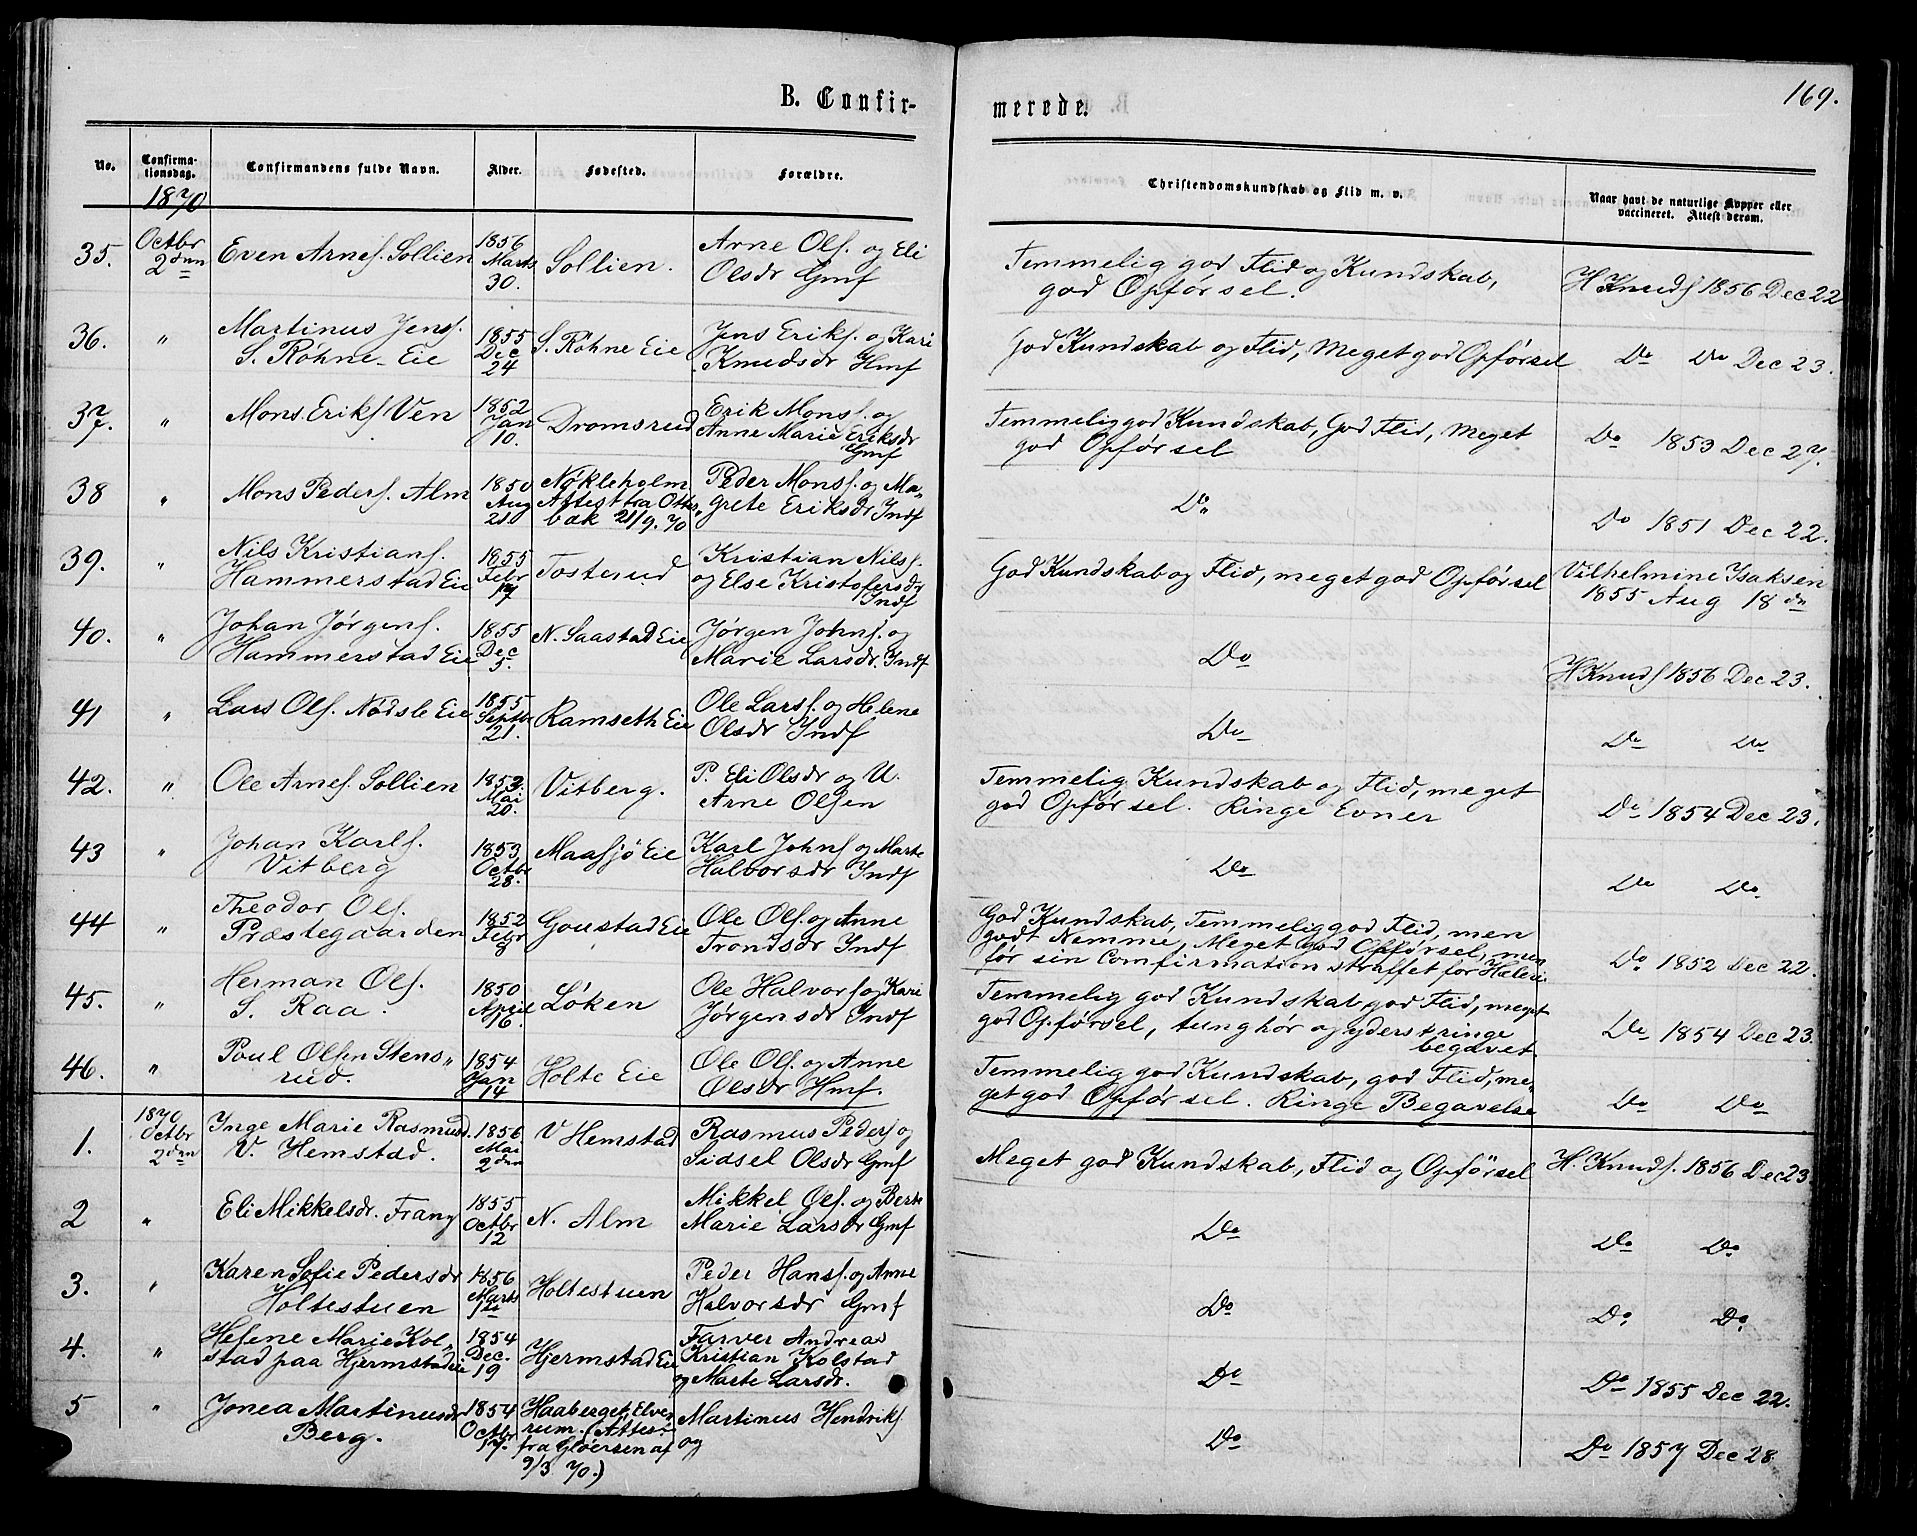 B. Confir-
merede.
169.
No.
Confirma-
tionsdag.
Confirmandens fulde Navn.
Alder.
Fødested.
Forældre.
Christendomskundskab og Flid m. v.
Naar havt de naturlige Kopper eller
vaccineret. Attest derom.
1870
35.
Octbr
2den
Even Arnes. Sollien
1856
Marts
30.
Sollien.
Arne Ols. og Eli
Olsdr Gmf
Temmelig god Flid og Kundskab,
god Opførsel.
H Knuds 1856 Dec 22
36.
"
Martinus Jens.
S. Røhne-Eie
1855
Dec
24
S. Røhne Eie
Jens Eriks. og Kari
Knudsdr Hmf
God Kundskab og Flid, Meget god Opførsel
Do Do Dec 23.
37.
"
Mons Eriks Ven
1852
Jan
10.
Dromsrud
Erik Mons. og
Anne Marie Eriksdr
Gmf
Temmelig god Kundskab, God Flid, Meget
god Opførsel
Do 1853 Dec 27.
38
"
Mons Peders. Alm
1850
Aug
21.
Nøkleholm
Attest fra Otter„
bæk 21/9.70
Peder Mons. og Ma„
grete Eriksdr Indf
Do
Do 1851 Dec 22.
39.
"
Nils Kristians.
Hammerstad Eie
1855
Febr
17
Tosterud
Kristian Nils.
og Else Kristofersdr
Indf
God Kundskab og Flid, meget god Opførsel
Vilhelmine Isaksen
1855 Aug 18 de
40.
"
Johan Jørgens.
Hammerstad Eie
1855
Dec
5.
N. Saastad Eie
Jørgen Johns. og
Marie Larsdr. Indf
Do
H Knuds 1856 Dec 23.
41
"
Lars Ols. Nødsle Eie
1855
Septbr
21.
Ramseth Eie
Ole Lars. og Helene
Olsdr Indf
Do
Do Do
42.
"
Ole Arnes. Sollien
1853.
Mai
20.
Vitberg.
P. Eli Olsdr og U.
Arne Olsen
Temmelig Kundskab og Flid, meget
god Opførsel. Ringe Evner
Do 1854 Dec 23.
43
"
Johan Karls.
Vitberg
1853
Octbr
28.
Maasjø Eie
Karl Johns og Marte
Halvorsdr Indf
Do
Do Do
44
"
Theodor Ols.
Præstegaarden
1852
Febr
8
Goustad Eie
Ole Ols. og Anne
Trondsdr Indf
God Kundskab, Temmelig god Flid, men
godt Nemme, Meget god Opførsel, men
før sin Comfirmation straffet for Hæleri
Do 1852 Dec 22.
45.
"
Herman Ols.
S. Raa.
1850
April
16.
Løken
Ole Halvors og Kari
Jørgensdr Indf
Temmelig god Kundskab god Flid, meget
god Opførsel, tunghør og yderst ringe
begavet
Do 1854 Dec 23.
46.
"
Poul Olsen Stens„
rud.
1854
Jan
14
Holte Eie
Ole Ols. og Anne
Olsdr Hmf.
Temmelig god Kundskab, god Flid, me„
get god Opførsel. Ringe Begavelse
Do Do
1.
1870
Octbr
2den
Inge Marie Rasmusd.
V. Hemstad.
1856
Mai
2den
V Hemstad
Rasmus Peders og
Sidsel Olsdr Gmf
Meget god Kundskab, Flid og Opførsel
H. Knuds. 1856 Dec 23
2
"
Eli Mikkelsdr. Frang
1855
Octbr
12
N. Alm
Mikkel Ols. og Berte
Marie Larsdr Gmf
Do
Do Do
3.
"
Karen Sofie Pedersdr
Holtestuen
1856
Marts
1ste
Holtestuen
Peder Hans. og Anne
Halvorsdr Gmf
Do
Do Do
4.
"
Helene Marie Kol„
stad paa Hjermstadeie
1854
Dec.
19
Hjermstad Eie
Farver Andreas
Kristian Kolstad
og Marte Larsdr.
Do
Do 1855 Dec 22.
5
"
Jonea Martinusdr
Berg.
1854
Octbr
17.
Haaberget, Elve„
rum. (Attest
fra Gløersen af
9/3 70.)
Martinus Hendriks
og
Do
Do 1857 Dec 28